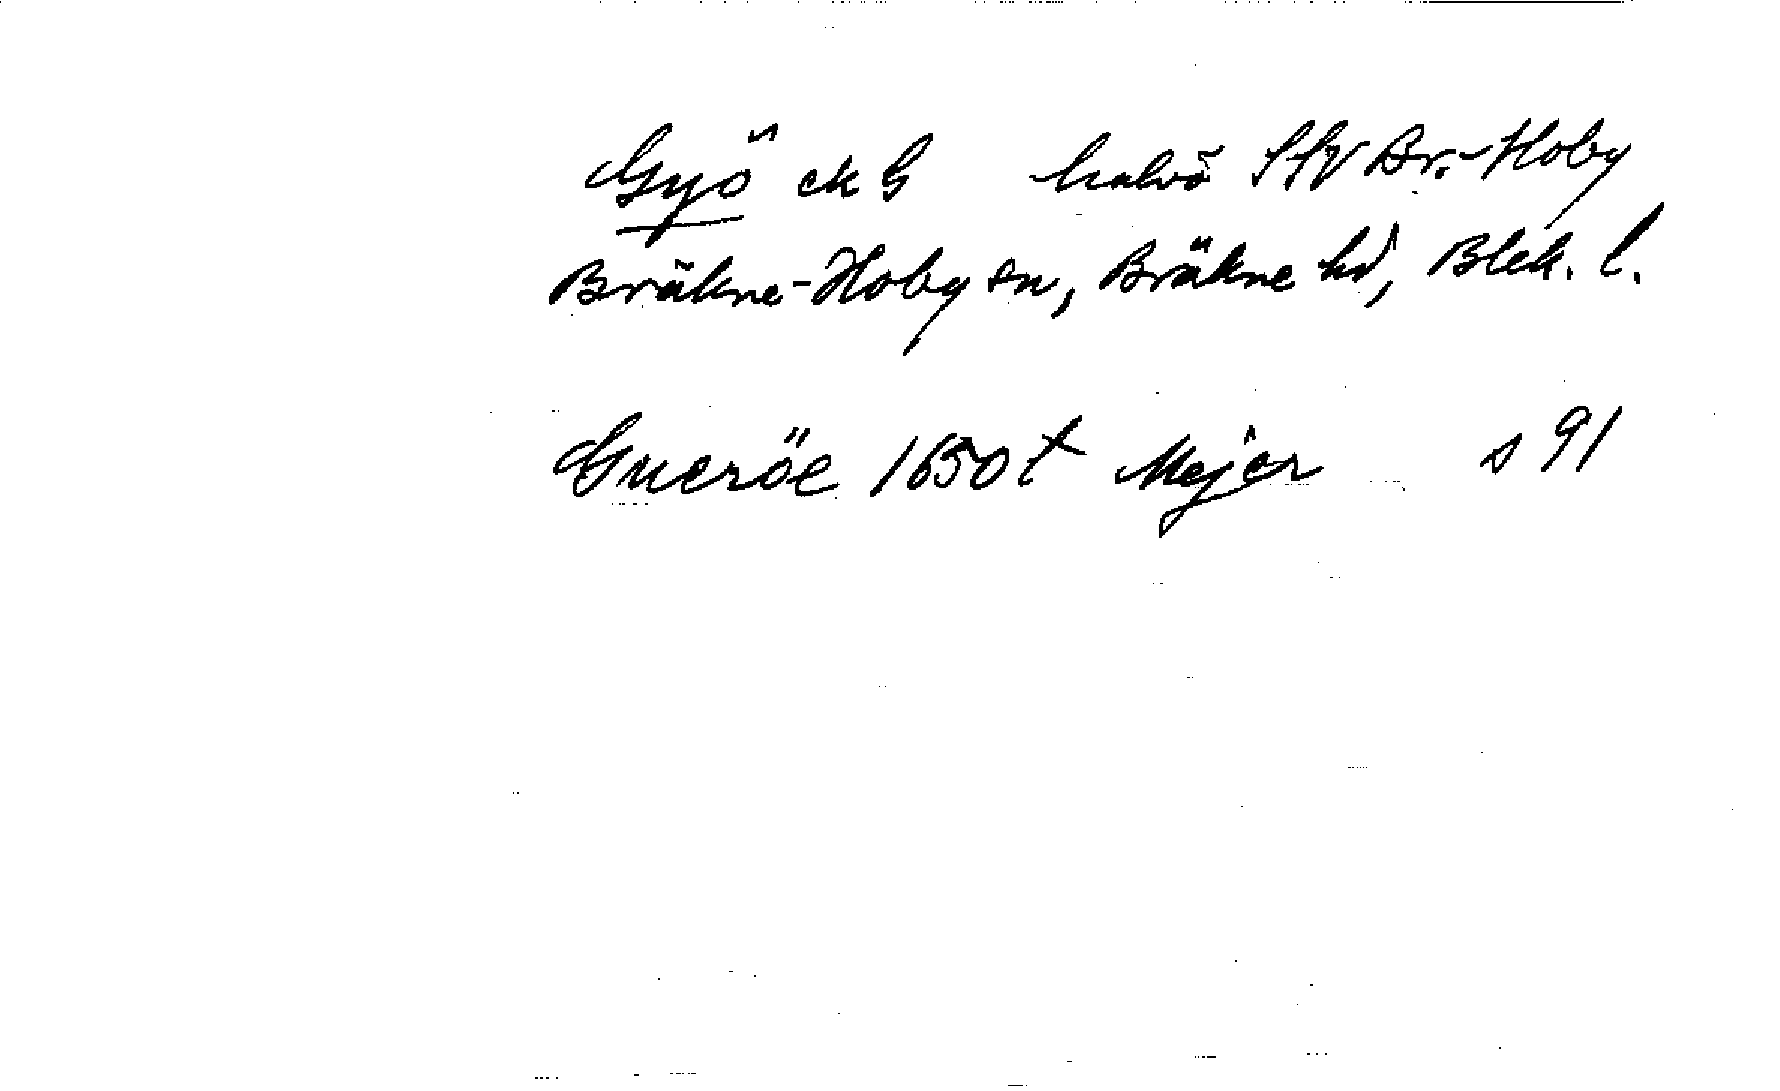 Gyö ek G halvö SSV Br.-Hoby
Bräkne-Hoby sn, Bräkne hd, Blek. l.
Gueröe 1650t Mejer s 91